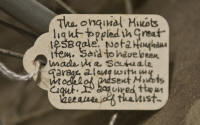 The original Minots
light toppled in Great
1858 gale. Not a Hingham
item. Said to have been
made in a Scituate
garage along with my
model of present Minots
Light. I acquired them
because of the hist.